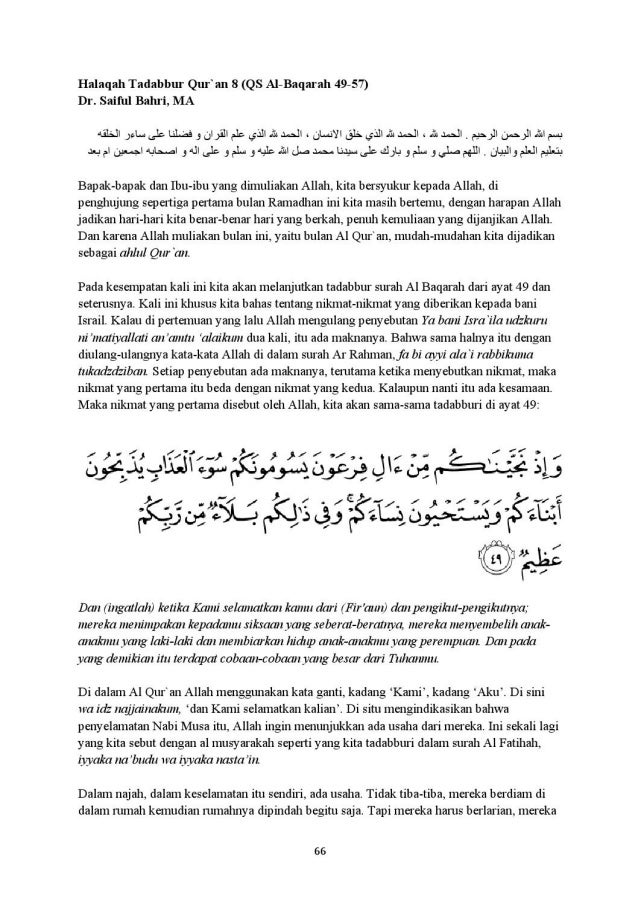 Halaqah Tadabbur Qur`an 8 (QS Al-Baqarah 49-57)
Dr. Saiful Bahri, MA
بسم الله الرحمن الرحيم . الحمد لله ، الحمد لله الذي خلق الانسان ، الحمد لله الذي علم القران و فضلنا على ساءر الخلقه
بتعليم العلم والبيان . اللهم صلي و سلم و بارك على سيدنا محمد صل الله عليه و سلم و على اله و اصحابه اجمعين ام بعد
Bapak-bapak dan Ibu-ibu yang dimuliakan Allah, kita bersyukur kepada Allah, di
penghujung sepertiga pertama bulan Ramadhan ini kita masih bertemu, dengan harapan Allah
jadikan hari-hari kita benar-benar hari yang berkah, penuh kemuliaan yang dijanjikan Allah.
Dan karena Allah muliakan bulan ini, yaitu bulan Al Qur`an, mudah-mudahan kita dijadikan
sebagai ahlul Qur`an.
Pada kesempatan kali ini kita akan melanjutkan tadabbur surah Al Baqarah dari ayat 49 dan
seterusnya. Kali ini khusus kita bahas tentang nikmat-nikmat yang diberikan kepada bani
Israil. Kalau di pertemuan yang lalu Allah mengulang penyebutan Ya bani Isra`ila udzkuru
ni’matiyallati an’amtu ‘alaikum dua kali, itu ada maknanya. Bahwa sama halnya itu dengan
diulang-ulangnya kata-kata Allah di dalam surah Ar Rahman, fa bi ayyi ala`i rabbikuma
tukadzdziban. Setiap penyebutan ada maknanya, terutama ketika menyebutkan nikmat, maka
nikmat yang pertama itu beda dengan nikmat yang kedua. Kalaupun nanti itu ada kesamaan.
Maka nikmat yang pertama disebut oleh Allah, kita akan sama-sama tadabburi di ayat 49:
وَإِذْ نَجَّيْنَـٰكُم مِّنْ ءَالِ فِرْعَوْنَ يَسُومُونَكُمْ سُوٓءَ ٱلْعَذَابِ يُذَبِّحُونَ
أَبْنَآءَكُمْ وَيَسْتَحْيُونَ نِسَآءَكُمْ ۚ وَفِى ذَٰلِكُم بَلَآءٌ مِّن رَّبِّكُمْ
عَظِيمٌ ٤٩
Dan (ingatlah) ketika Kami selamatkan kamu dari (Fir'aun) dan pengikut-pengikutnya;
mereka menimpakan kepadamu siksaan yang seberat-beratnya, mereka menyembelih anak-
anakmu yang laki-laki dan membiarkan hidup anak-anakmu yang perempuan. Dan pada
yang demikian itu terdapat cobaan-cobaan yang besar dari Tuhanmu.
Di dalam Al Qur`an Allah menggunakan kata ganti, kadang ‘Kami’, kadang ‘Aku’. Di sini
wa idz najjainakum, ‘dan Kami selamatkan kalian’. Di situ mengindikasikan bahwa
penyelamatan Nabi Musa itu, Allah ingin menunjukkan ada usaha dari mereka. Ini sekali lagi
yang kita sebut dengan al musyarakah seperti yang kita tadabburi dalam surah Al Fatihah,
iyyaka na’budu wa iyyaka nasta’in.
Dalam najah, dalam keselamatan itu sendiri, ada usaha. Tidak tiba-tiba, mereka berdiam di
dalam rumah kemudian rumahnya dipindah begitu saja. Tapi mereka harus berlarian, mereka
66